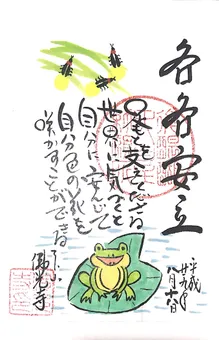 各各安立
平成
廿九年
足を支えている
世界に気づくと
自分に安んじて
自分色の花を
咲かすことができる
佛光寺